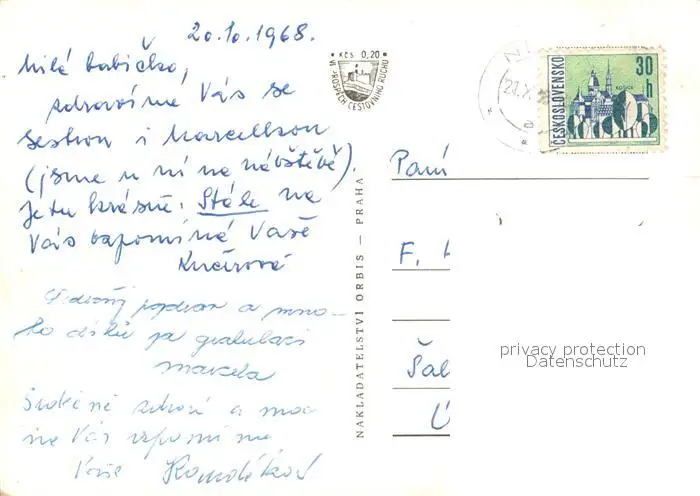 20.10.1968.
Milá babičko,
zdravíme Vás se
sestrou i Marcelkou
(jsme u ní na návštěvě).
Je tu krásně. Stále na
Vás vzpomíná Vaše
Kučírová
Srdečný pozdrav a mno-
ho díků za gratulaci
Marcela
Srdečně zdraví a moc
na Vás vzpomíná
Vaše
• KČS 0,20 •
VE PROSPĚCH CESTOVNÍHO RUCHU
NAKLADATELSTVÍ ORBIS — PRAHA
ČESKOSLOVENSKO
30 h
KOŠICE
Paní
F.
Šal
privacy protection
Datenschutz